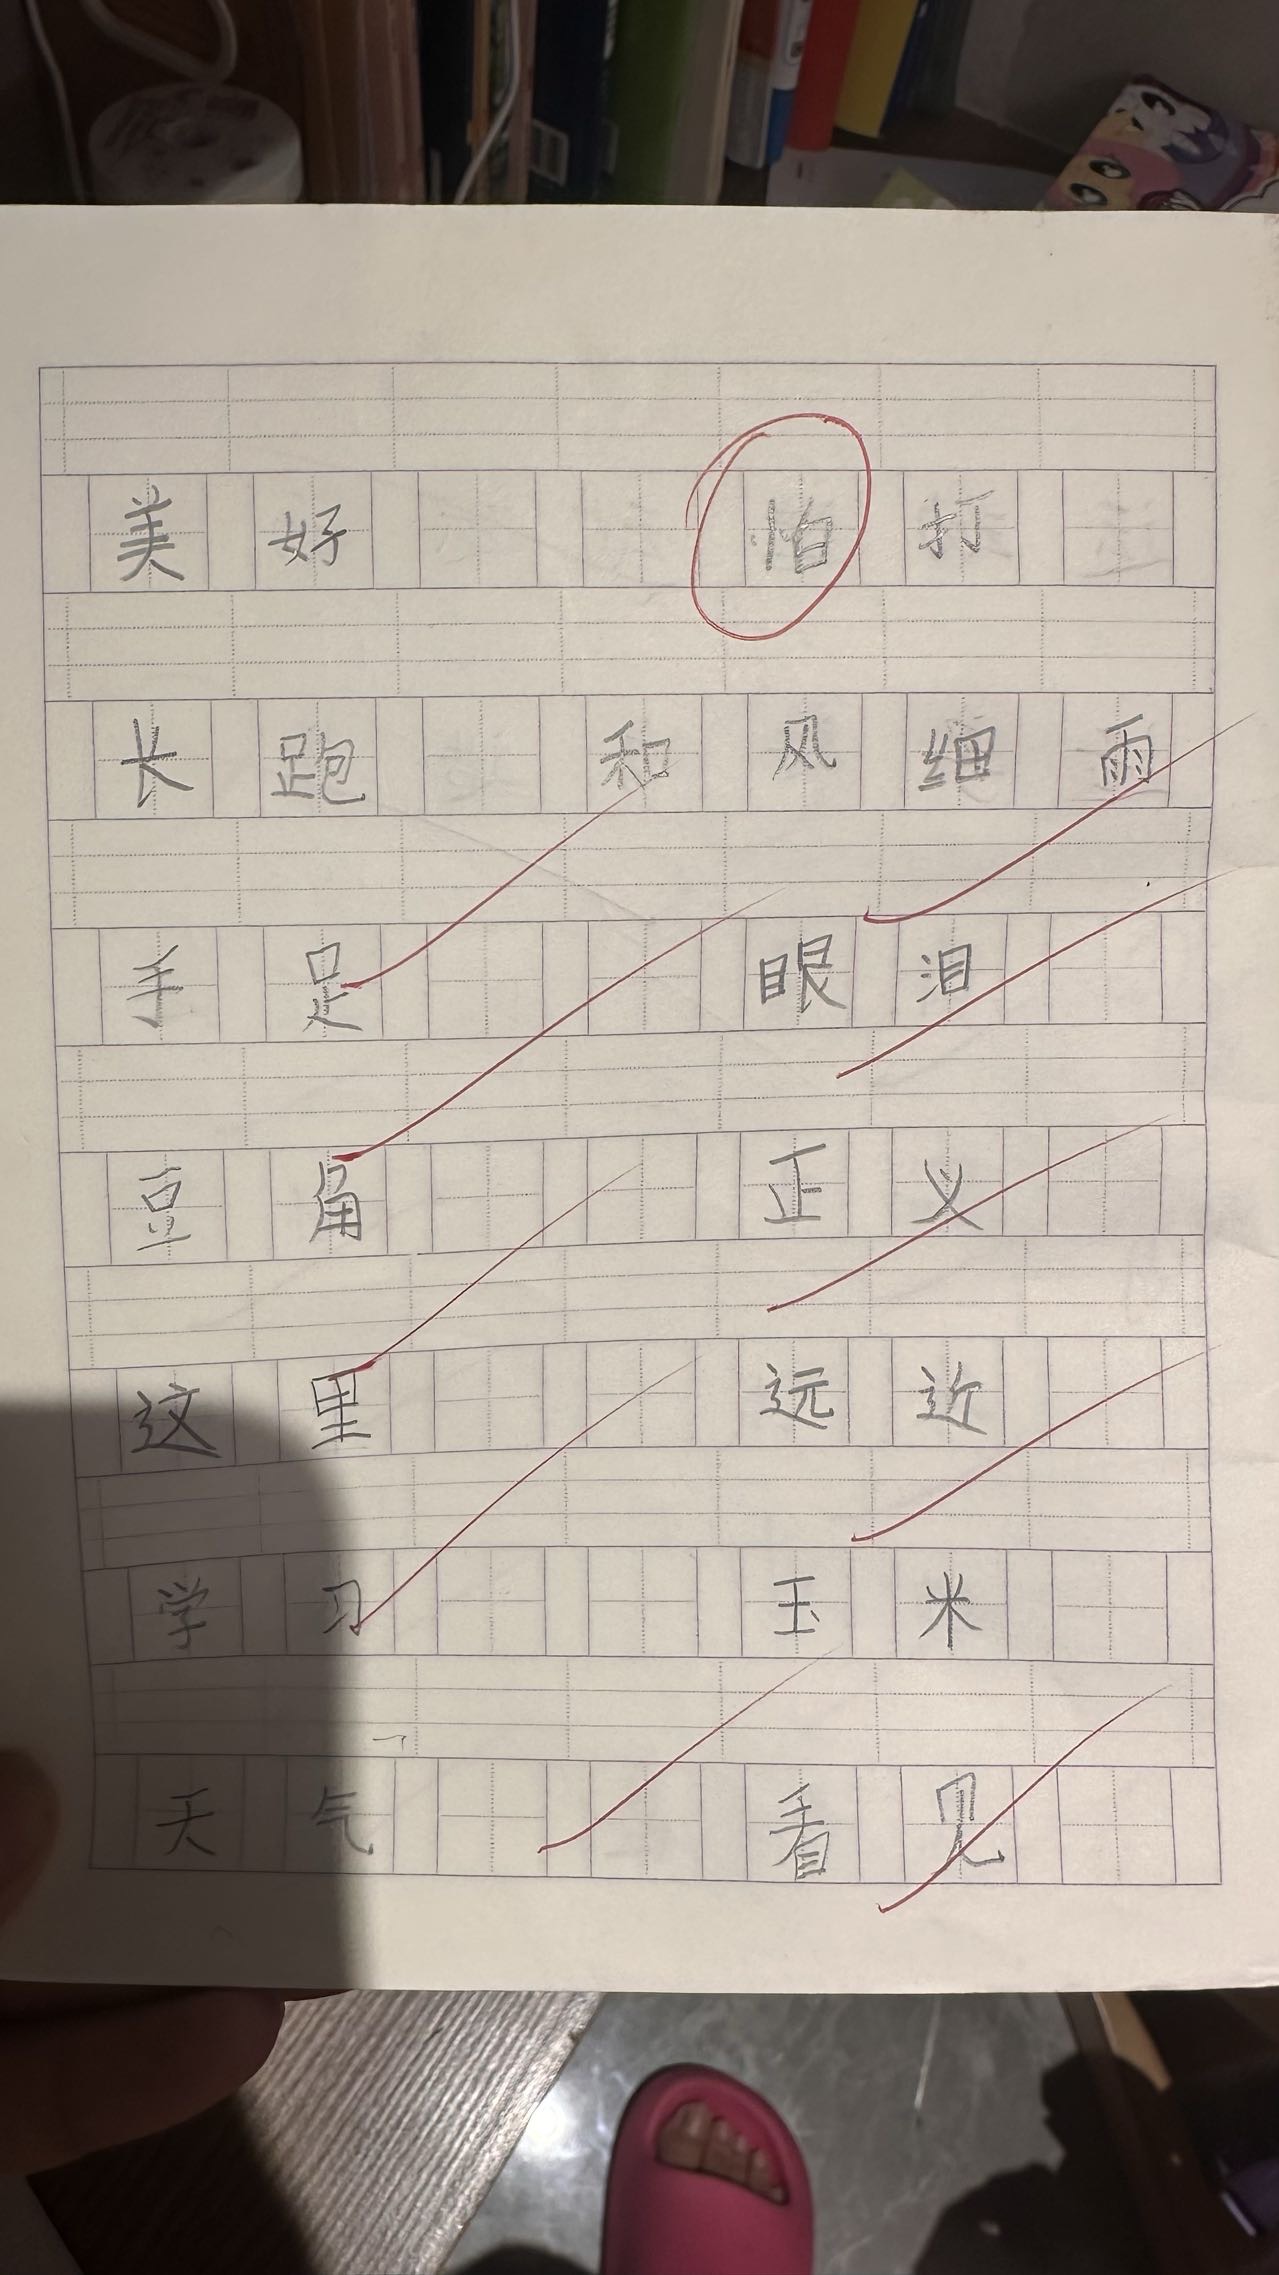 美好 怕打
长跑 和风细雨
手足 眼泪
豆角 正义
这里 远近
学习 玉米
天气 看见